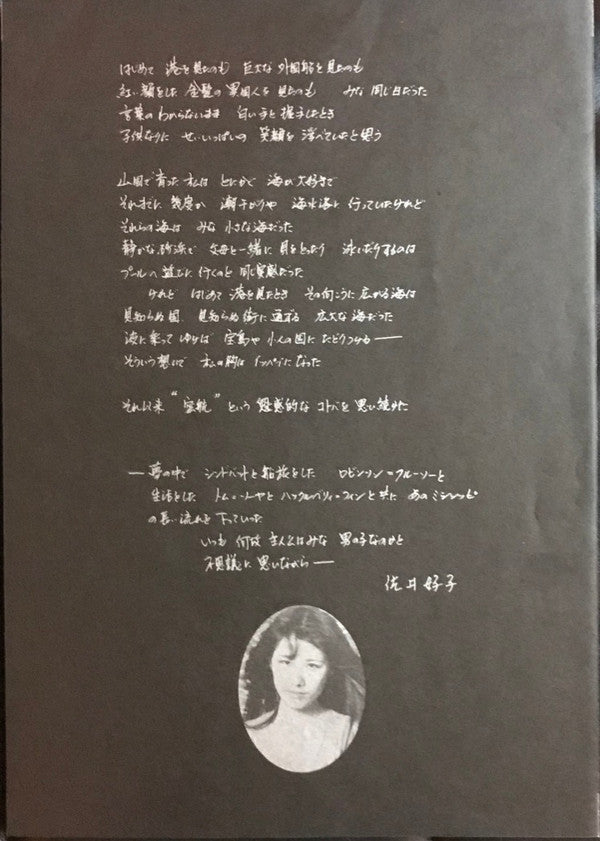 はじめて 港を見たのも 巨大な 外国船を見たのも
紅い顔をした 金髪の 異国人を 見たのも みな 同じ日だった
言葉の わからないまま 白い手と 握手したとき
子供なりに せいいっぱいの 笑顔を 浮べていたと思う
山国で育った 私は とにかく 海が大好きで
それまでに 幾度か 潮干がりや 海水浴に 行っていたけれど
それらの海は みな 小さな海だった
静かな砂浜で 父母と一緒に 貝をとったり 泳いだりするのは
プールへ 遊びに 行くのと 同じ実感だった
けれど はじめて 港を見たとき その向こうに 広がる海は
見知らぬ国 見知らぬ街に 通ずる 広大な 海だった
波に乗って ゆけば 宝島や 小人の国に たどりつける——
そういう想いで 私の胸は イッパイに なった
それ以来 “密航” という 魅惑的な コトバを 思い続けた
—夢の中で シンドバットと船旅をした ロビンソン=クルーソーと
生活をした トム=ソーヤと ハックルベリィ=フィンと共に あの ミシシッピ
の長い流れを 下っていった
いつも 何故 主人公はみな 男の子なのかと
不思議に 思いながら——
佐井好子